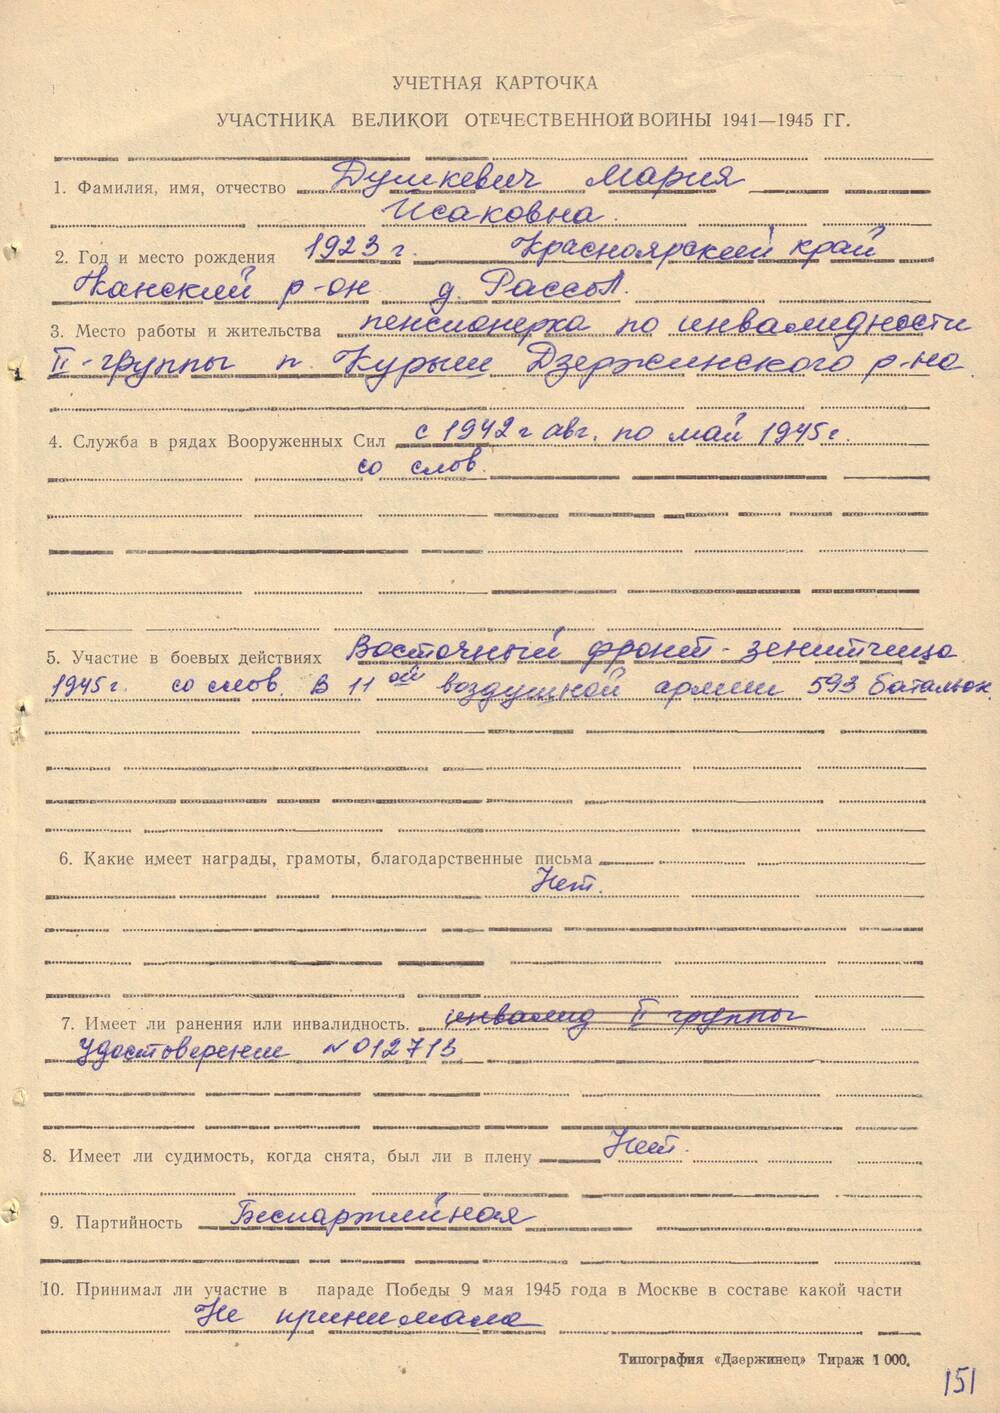 УЧЕТНАЯ КАРТОЧКА
УЧАСТНИКА ВЕЛИКОЙ ОТЕЧЕСТВЕННОЙ ВОЙНЫ 1941—1945 ГГ.
1. Фамилия, имя, отчество Душкевич Мария
Исаковна.
2. Год и место рождения 1923 г. Красноярский край
Канский р-он д. Рассол.
3. Место работы и жительства пенсионерка по инвалидности
II-группы п. Курыш Дзержинского р-на.
4. Служба в рядах Вооруженных Сил с 1942 г авг. по май 1945 г.
со слов.
5. Участие в боевых действиях Восточный фронт - зенитчица
1945 г. со слов. В 11 ой воздушной армии 593 батальон.
6. Какие имеет награды, грамоты, благодарственные письма
Нет.
7. Имеет ли ранения или инвалидность. инвалид II группы
Удостоверение N 012713
8. Имеет ли судимость, когда снята, был ли в плену Нет.
9. Партийность Беспартийная
10. Принимал ли участие в параде Победы 9 мая 1945 года в Москве в составе какой части
Не принимала
Типография «Дзержинец» Тираж 1 000.
151